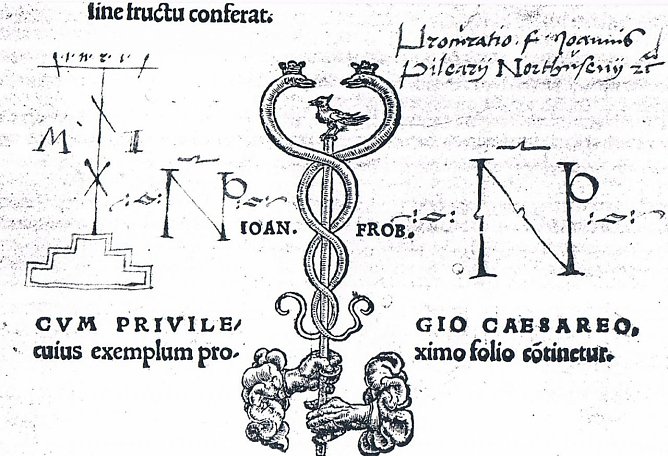 sine fructu conferat.
Procuratio f. Joannis
Pilearij Northusenij
M I
N P
N P
IOAN. FROB.
CVM PRIVILE/ GIO CAESAREO,
cuius exemplum pro- ximo folio cõtinetur.